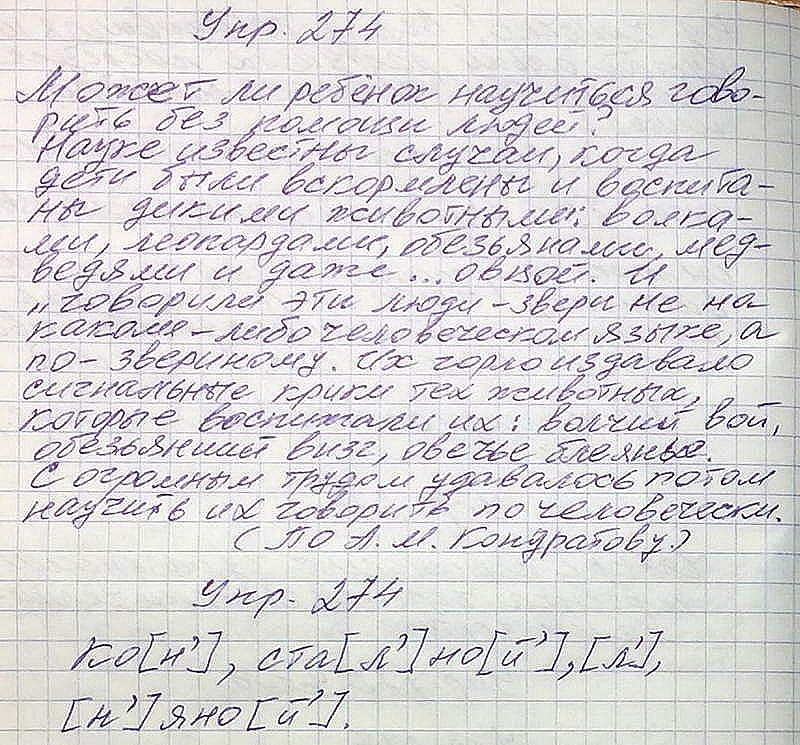 Упр. 274
Может ли ребёнок научиться гово-
рить без помощи людей?
Науке известны случаи, когда
дети были вскормлены и воспита-
ны дикими животными: волка-
ми, леопардами, обезьянами, мед-
ведями и даже ... овцой. И
„говорили эти люди-звери не на
каком-либо человеческом языке, а
по-звериному. Их горло издавало
сигнальные крики тех животных,
которые воспитали их: волчий вой,
обезьяний визг, овечье блеянье.
С огромным трудом удавалось потом
научить их говорить по человечески.
(По А. М. Кондратову.)
Упр. 274
ко[н'], ста[л']но[й'], [л'],
[н']яно[й'].